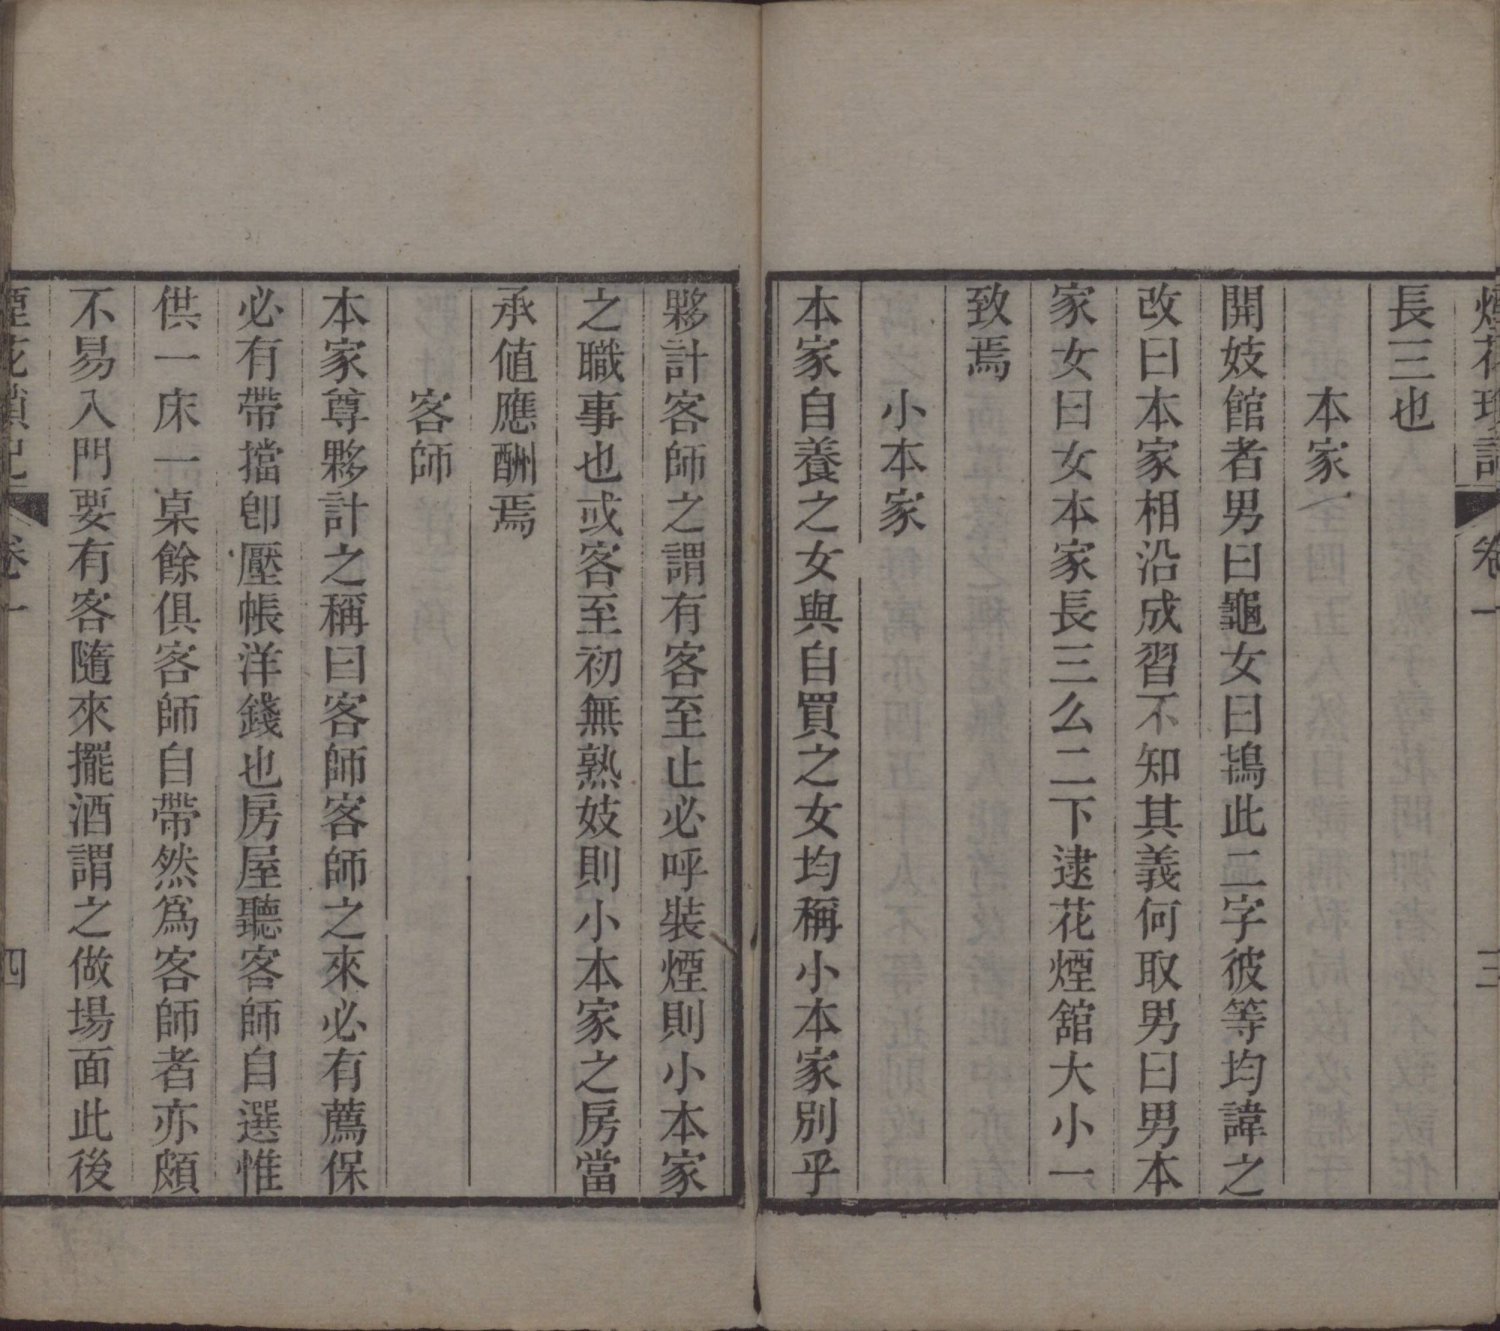 長三也
本家
開妓館者男曰龜女曰鴇此二字彼等均諱之
改曰本家相沿成習不知其義何取男曰男本
家女曰女本家長三么二下逮花煙舘大小一
致焉
小本家
本家自養之女與自買之女均稱小本家別乎
夥計客師之謂有客至止必呼裝煙則小本家
之職事也或客至初無熟妓則小本家之房當
承値應酬焉
客師
本家尊夥計之稱曰客師客師之來必有薦保
必有帶擋卽壓帳洋錢也房屋聽客師自選惟
供一床一桌餘俱客師自帶然爲客師者亦頗
不易入門要有客隨來擺酒謂之做場面此後
卷一
四